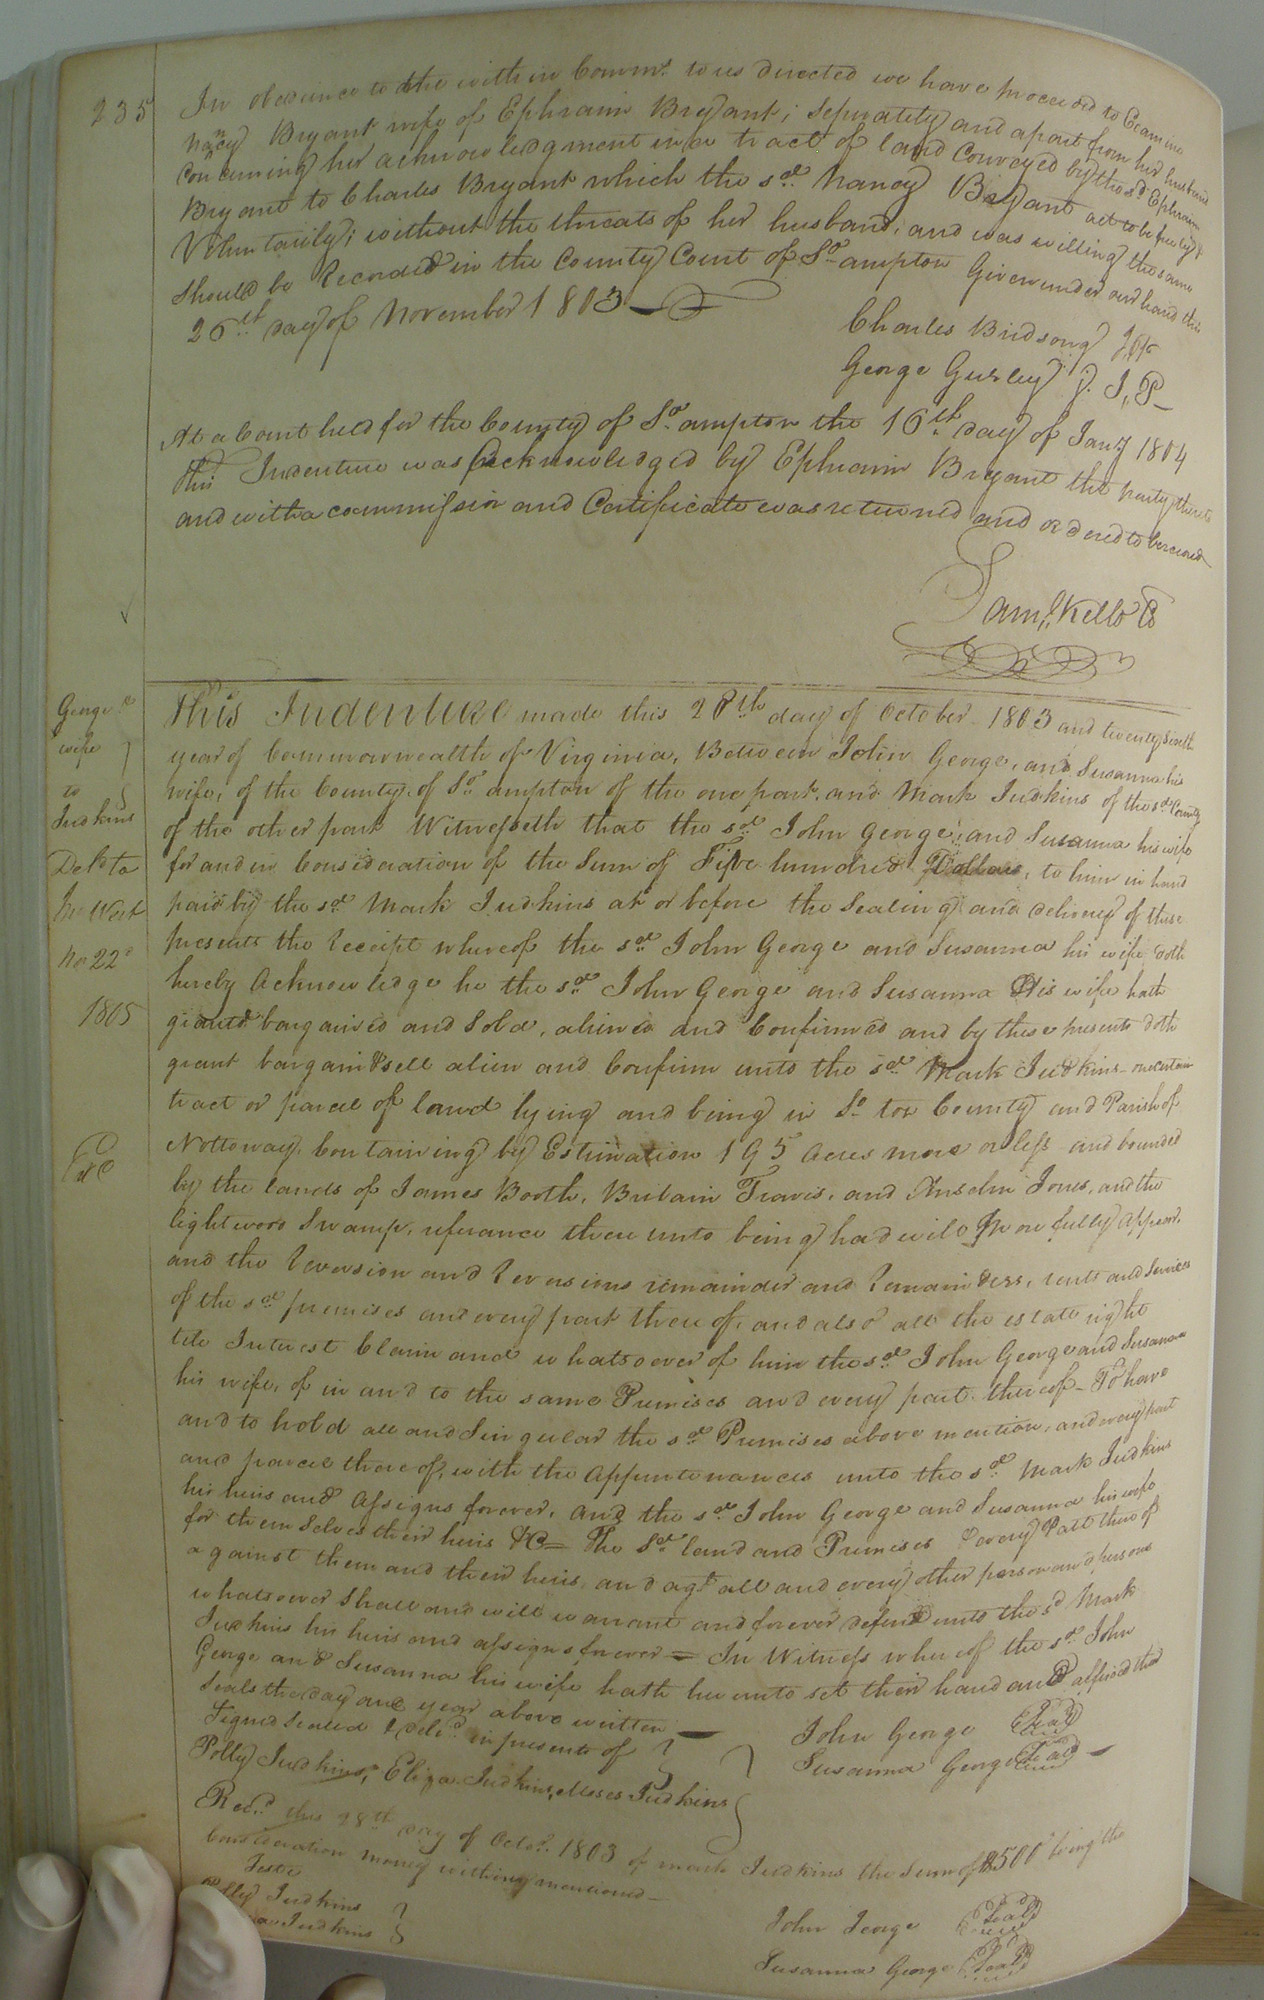 235
In obedience to the within Commn. to us directed we have proceeded to Examine
Nancy Bryant wife of Ephraim Bryant; Separately and apart from her husband
Concerning her acknowledgment in a tract of land Conveyed by the sd. Ephraim
Bryant to Charles Bryant which the sd. Nancy Bryant act to be freely &
Voluntarily; without the threats of her husband, and was willing the same
should be Recorded in the County Court of So.ampton Given under our hand this
26th day of November 1803
Charles Birdsong
George Gurley J. P.
At a Court held for the County of So.ampton the 16th. day of Jany 1804
this Indenture was acknowledged by Ephraim Bryant the party thereto
and with a commission and Certificate was returned and ordered to be recorded
Saml. Kello C
George &
wife
to
Judkins
Deld. to
West
Nov 22d
1805
This Indenture made this 28th day of October 1803 and twenty
year of Commonwealth of Virginia, Between John George, and Susanna his
wife, of the County of So.ampton of the one part, and Mark Judkins of the sd. County
of the other part Witnesseth that the sd. John George, and Susanna his wife
for and in Consideration of the Sum of Five hundred Dollars, to him in hand
paid by the sd. Mark Judkins at or before the Sealing and delivery of these
presents the receipt whereof the sd. John George and Susanna his wife doth
hereby Acknowledge he the sd. John George and Susanna His wife hath
granted bargained and Sold, aliened and Confirmed and by these presents doth
grant bargain & sell alien and Confirm unto the sd. Mark Judkins one certain
tract or parcel of land lying and being in So. ton County and Parish of
Nottoway, Containing by Estimation 195 acres more or less and bounded
by the lands of James Booth, Britain Travis, and Anselm Jones, and the
lightwood Swamp, referance there unto being had will More fully appear,
and the reversion and reversions remainder and remainders, rents and Services
of the sd. premises and every part there of, and also all the estate right
tile Interest Claim and whatsoever of him the sd. John George and Susanna
his wife, of in and to the same Premises and every part thereof - To have
and to hold all and Singular the sd. Premises above mention, and every part
and parcel there of, with the Appurtenances unto the sd. Mark Judkins
his heirs and Assigns forever, and the sd. John George and Susanna his wife
for them Selves their heirs &C = The sd. land and Premises & every Patt there of
against them and their heirs, and agt. all and every other person and persons
whatsoever Shall and will warrant and forever defend unto the sd Mark
Judkins his heirs and assigns forever = In Witness whereof the sd. John
George and Susanna his wife hath hereunto set their hand and affixed their
Seals the day and year above written
Signed Sealed & deld. in presents of
John George Seal
Polly Judkins, Eliza Judkins, Moses Judkins
Susanna George Seal
Recd. this 28th day of Octor. 1803 of Mark Judkins the Sum of $500 being the
Consideration money withing mentioned
Teste
Polly Judkins
Judkins
John George Seal
Susanna George Seal